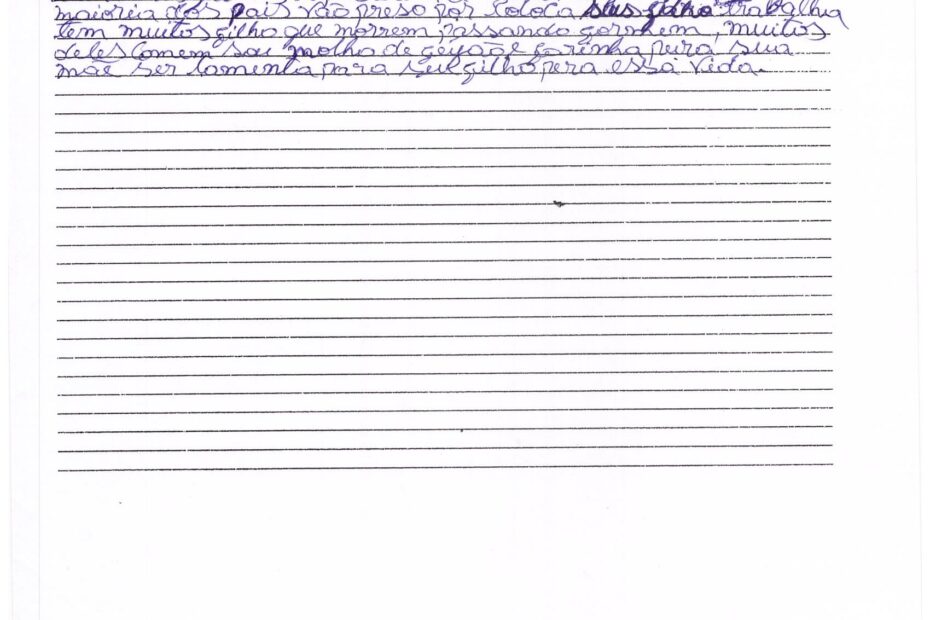 maioria dos pais vão preso por coloca seus gilho trabalhia
tem muitos gilho que morrem passando gormem, muitos
deles comem sou molho de geijão e garinha peira sua
mãe ser lamenta para seu gilho pera essa vida.